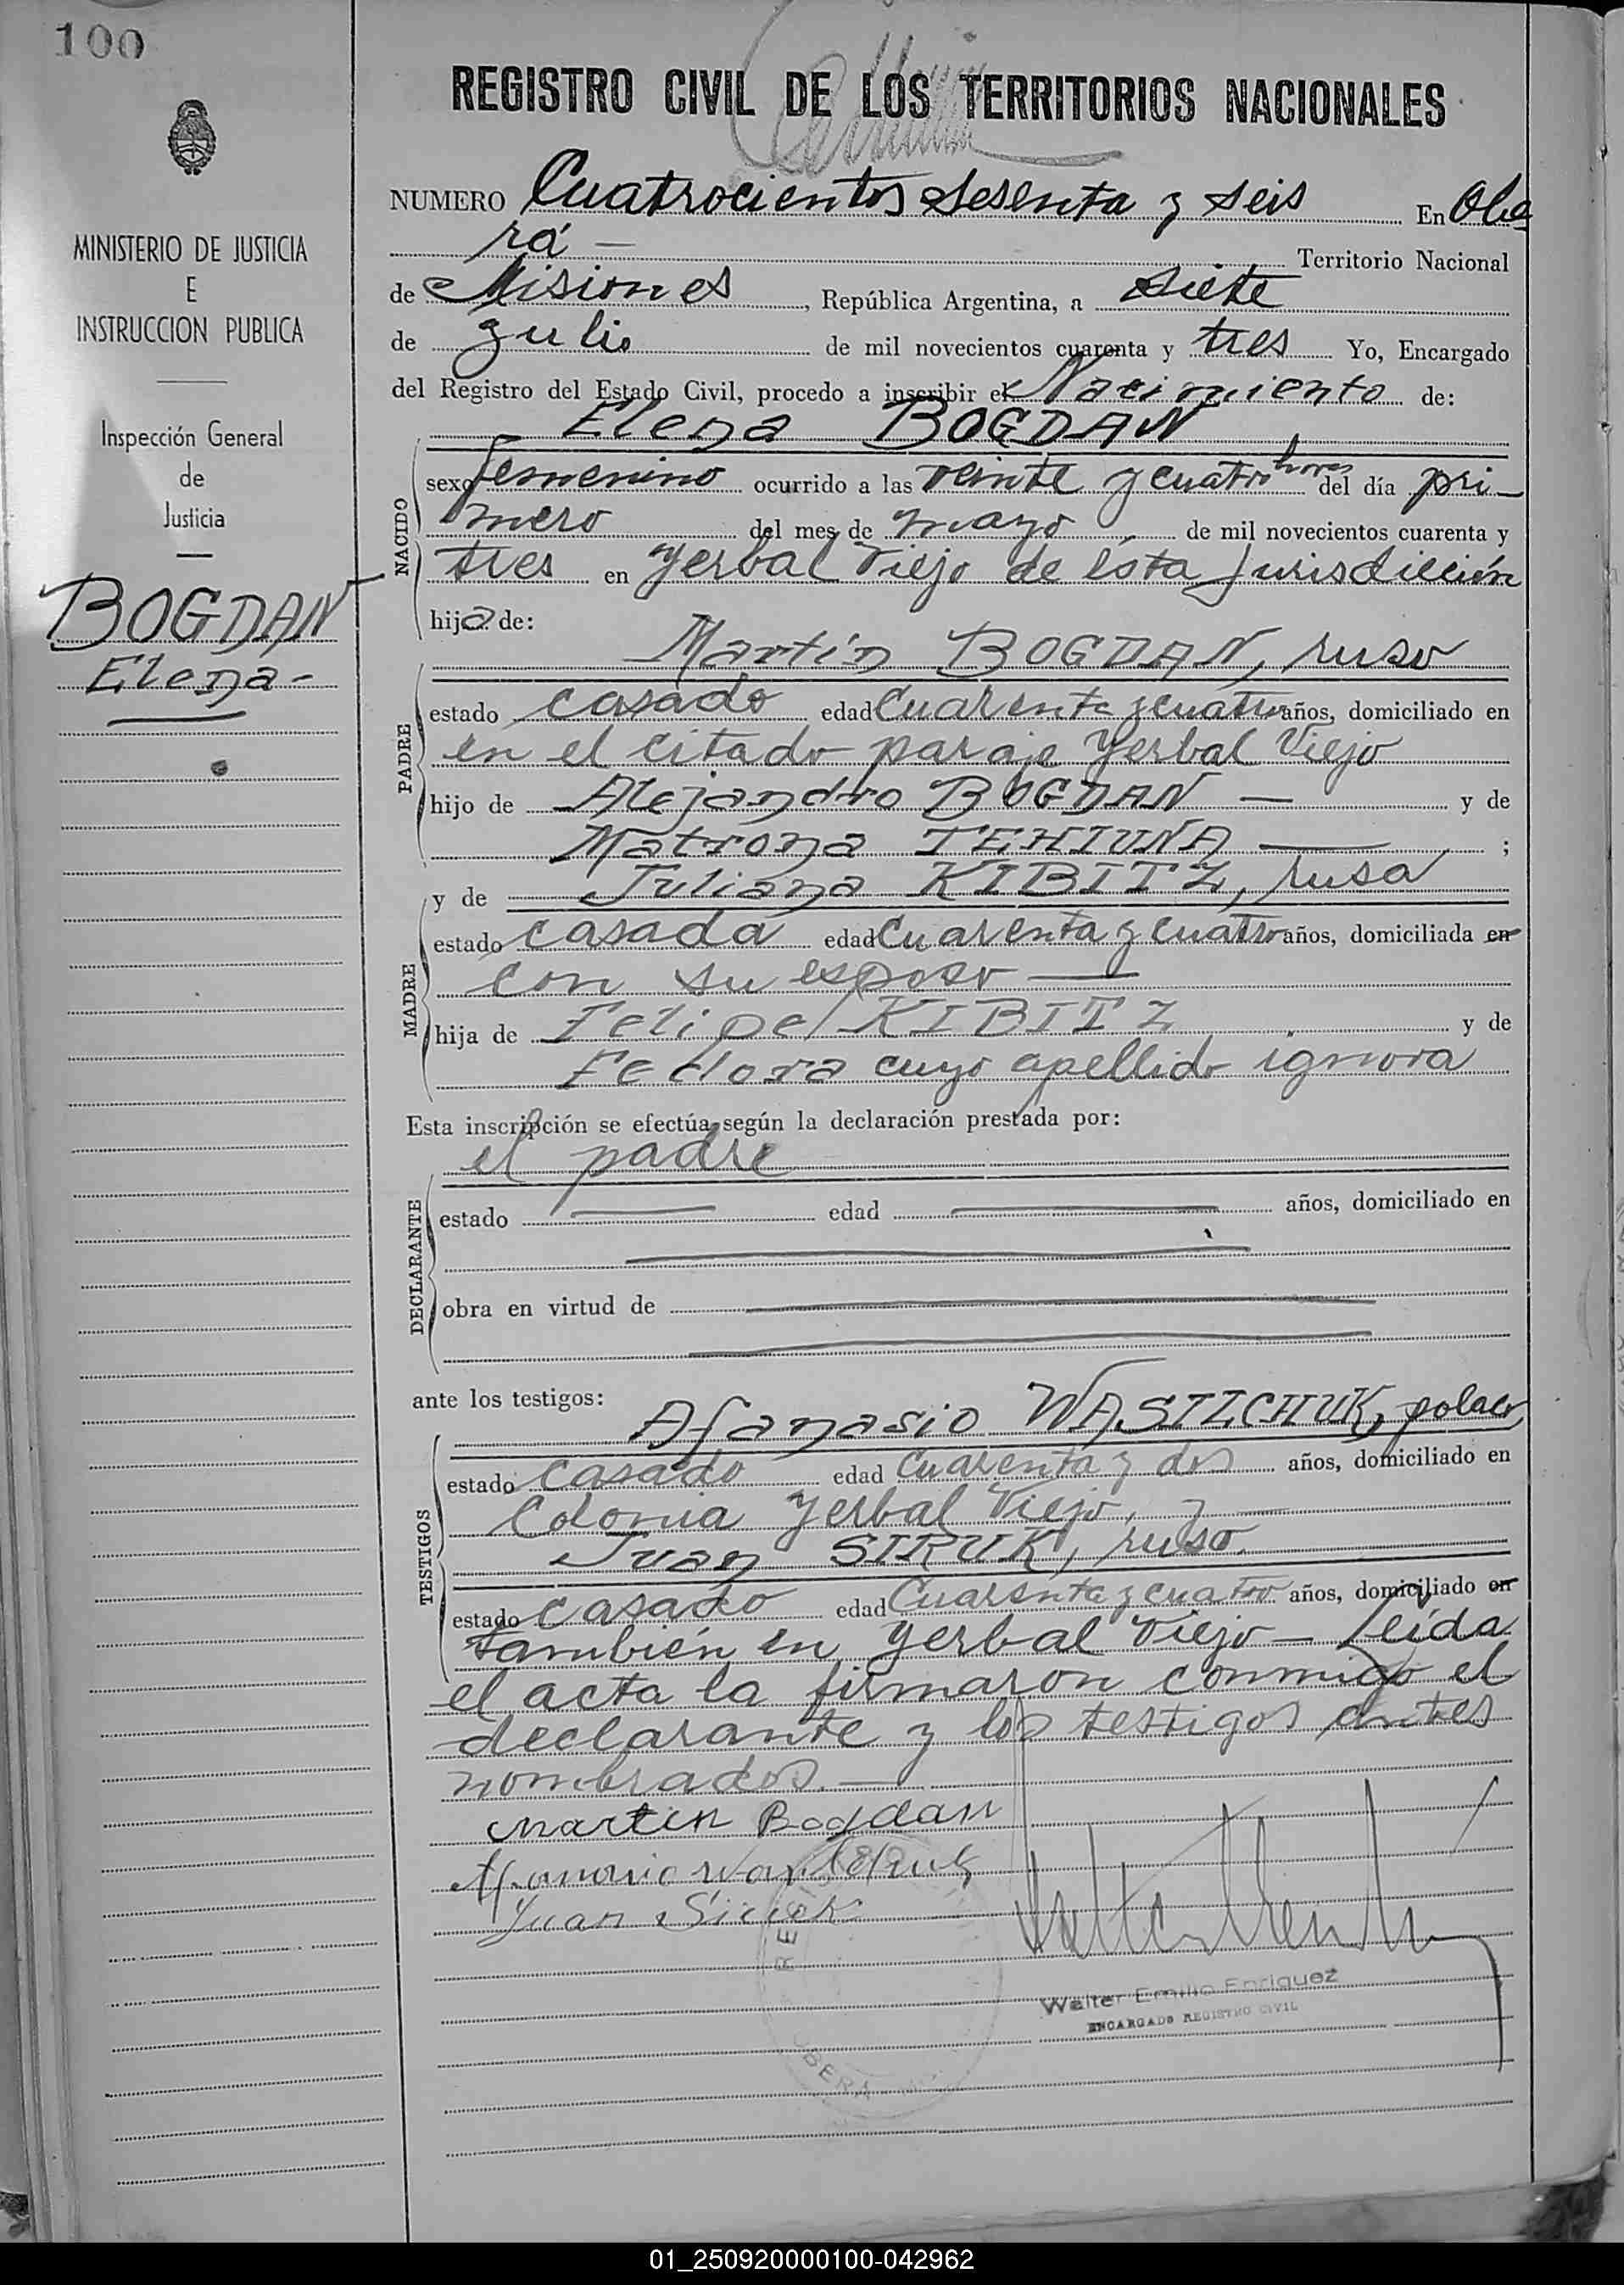 100
REGISTRO CIVIL DE LOS TERRITORIOS NACIONALES
MINISTERIO DE JUSTICIA
E
INSTRUCCION PUBLICA
Inspección General
de
Justicia
BOGDAN
Elena-
NUMERO Cuatrocientos sesenta y seis En Obe
rá — Territorio Nacional
de Misiones, República Argentina, a siete
de julio de mil novecientos cuarenta y tres Yo, Encargado
del Registro del Estado Civil, procedo a inscribir el Nacimiento de:
Elena BOGDAN
NACIDO
sexo femenino ocurrido a las veinte y cuatro horas del día pri-
mero del mes de mayo de mil novecientos cuarenta y
tres en Yerbal Viejo de ésta Jurisdicción
hija de:
Martín BOGDAN, ruso
PADRE
estado casado edad cuarenta y cuatro años, domiciliado en
en el citado paraje Yerbal Viejo
hijo de Alejandro BOGDAN — y de
Matrona TEHIUNA — ;
y de Juliana KIBITZ, rusa
MADRE
estado casada edad cuarenta y cuatro años, domiciliada en
con su esposo —
hija de Felipe KIBITZ y de
Fedora cuyo apellido ignora
Esta inscripción se efectúa según la declaración prestada por:
el padre
DECLARANTE
estado — edad — años, domiciliado en
obra en virtud de —
ante los testigos:
Afanasio WASILCHUK, polaco,
TESTIGOS
estado casado edad cuarenta y dos años, domiciliado en
Colonia Yerbal Viejo, y —
Juan SIRUK, ruso.
estado casado edad cuarenta y cuatro años, domiciliado en
también en Yerbal Viejo — Leída
el acta la firmaron conmigo el
declarante y los testigos antes
nombrados. —
Martin Bogdan
Juan Siruk
Walter Emilio Enriquez
ENCARGADO REGISTRO CIVIL
OBERA
01_250920000100-042962